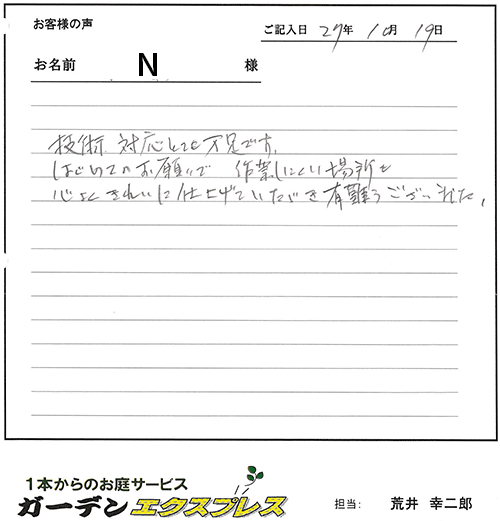 お客様の声
ご記入日 27年 10月 19日
お名前 N 様
技術 対応とても不足です。
はじめてのお願いで 作業しにくい場所を
心よくきれいに仕上げていただき有難うございました。
1本からのお庭サービス
ガーデンエクスプレス
担当: 荒井 幸二郎